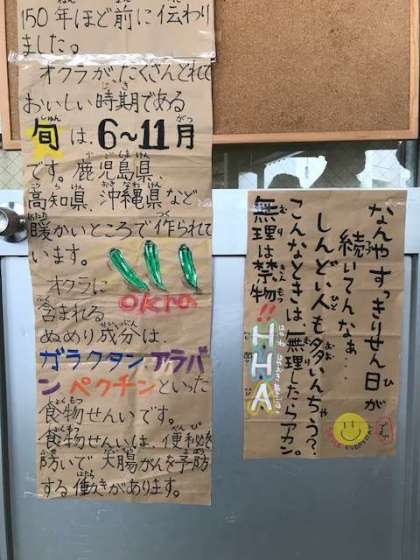 150年ほど前に伝わり
ました。
オクラが、たくさんとれて
おいしい時期である
旬は、6～11月
です。鹿児島県、
高知県、沖縄県など
暖かいところで作られて
います。
オクラに
含まれる
ぬめり成分は、
okra
ガラクタン、アラバ
ン、ペクチンといった
食物せんいです。
食物せんいは、便秘を
防いで、大腸がんを予防
する働きがあります。
なんやすっきりせん日が
続いてんなぁ…
しんどい人も多いんちゃう？
こんなときは無理したらアカン。
無理は禁物!!
HHA